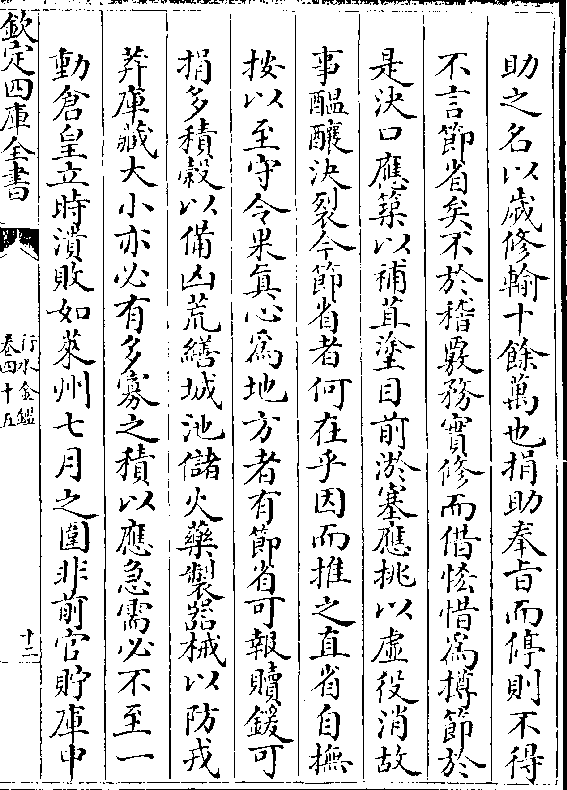 助之名以歲修輸十餘萬也捐助奉旨而停則不得
不言節省矣不於稽覈務實修而借恡惜為撙節於
是決口應築以補苴塗目前淤塞應挑以虛役消故
事醖釀決裂今節省者何在乎因而推之直省自撫
按以至守令果真心為地方者有節省可報贖鍰可
捐多積榖以備凶荒繕城池儲火藥製器械以防戎
莽庫藏大小亦必有多寡之積以應急需必不至一
動倉皇立時潰敗如萊州七月之圍非前官貯庫中
欽定四庫全書
行水金鑑
卷四十五
十二